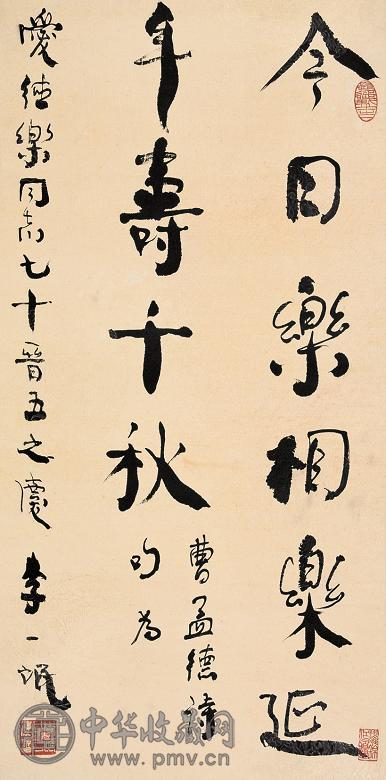 今日樂相樂延
年壽千秋
曹孟德詩
句为
愛德樂同志七十晉五之慶 李一氓
中华收藏网
www.pmv.cn